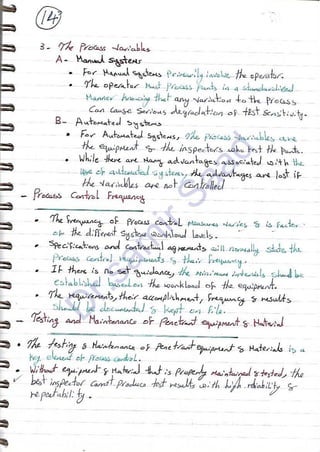 14
3- The Process Variables
A- Manual Systems
• For Manual Systems Primarily involve the operator.
• The operator Must Process Parts in a standardized
Manner Knowing that any variation to the Process
Can Cause Serious degradation of test Sensitivity.
B- Automated Systems
• For Automated Systems, the process variables are
the equipment & the inspectors who test the Parts.
• While there are Many advantages associated with the
use of automated systems, the advantages are lost if
the variables are not Controlled
- Process Control Frequency
• The Frequency of Process control Measures Varies & is Factor
of the different System workload levels.
• Specifications and contractual agreements will normally state the
Process control requirements & their Frequency.
• If there is no set guidance, the minimum intervals should be
established based on the workload of the equipment.
• The requirements, their accomplishment, Frequency & results
Should be documented & Kept on File.
- Testing and Maintenance of Penetrant equipment & Material
• The testing & Maintenance of Penetrant equipment & Materials is a
Key element of Process control.
• Without equipment & Material that is Properly Maintained & tested, the
best inspector cannot Produce test results with high reliability &
repeatability.